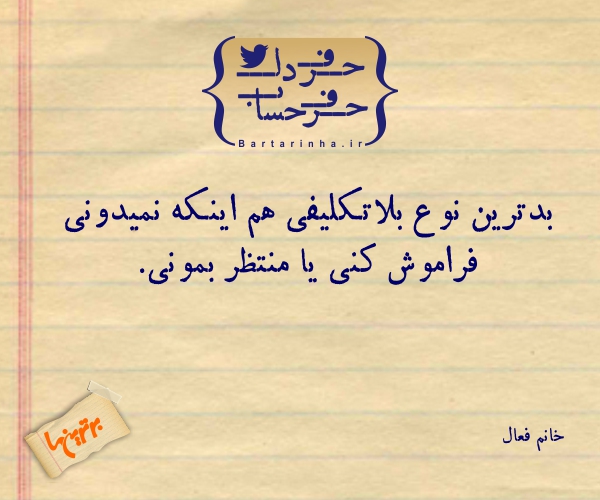 حرف دل
حرف حساب
Bartarinha.ir
بدترین نوع بلاتکلیفی هم اینکه نمیدونی
فراموش کنی یا منتظر بمونی.
خانم فعال
برترین‌ها